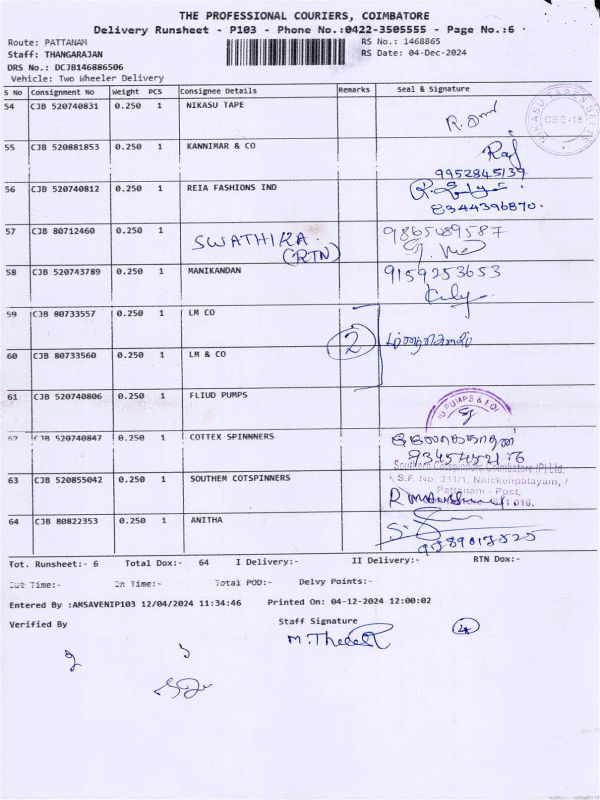 THE PROFESSIONAL COURIERS, COIMBATORE
Delivery Runsheet - P103 - Phone No.:0422-3505555 - Page No.:6
Route: PATTANAM RS No.: 1468865
Staff: THANGARAJAN RS Date: 04-Dec-2024
DRS No.: DCJB146886506
Vehicle: Two Wheeler Delivery
S No Consignment No Weight PCS Consignee Details Remarks Seal & Signature
54 CJB 520740831 0.250 1 NIKASU TAPE
55 CJB 520881853 0.250 1 KANNIMAR & CO
9952845139
56 CJB 520740812 0.250 1 REIA FASHIONS IND
8344396870.
57 CJB 80712460 0.250 1 SWATHIKA. 9865489587
(RTN)
58 CJB 520743789 0.250 1 MANIKANDAN 9159253653
59 CJB 80733557 0.250 1 LM CO
2
60 CJB 80733560 0.250 1 LM & CO
61 CJB 520740806 0.250 1 FLIUD PUMPS
62 CJB 520740847 0.250 1 COTTEX SPINNNERS
Southern Cotspinners Coimbatore (P) Ltd,
63 CJB 520855042 0.250 1 SOUTHEM COTSPINNERS S.F. No: 311/1, Naickenpalayam, /
Pattanam - Post,
64 CJB 80822353 0.250 1 ANITHA
Tot. Runsheet:- 6 Total Dox:- 64 I Delivery:- II Delivery:- RTN Dox:-
Out Time:- In Time:- Total POD:- Delvy Points:-
Entered By :AMSAVENIP103 12/04/2024 11:34:46 Printed On: 04-12-2024 12:00:02
Verified By Staff Signature